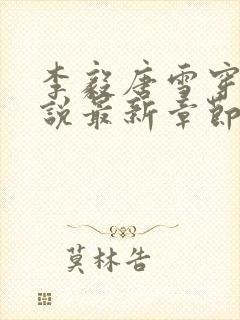 李毅唐雪穿
说最新章节
莫林告